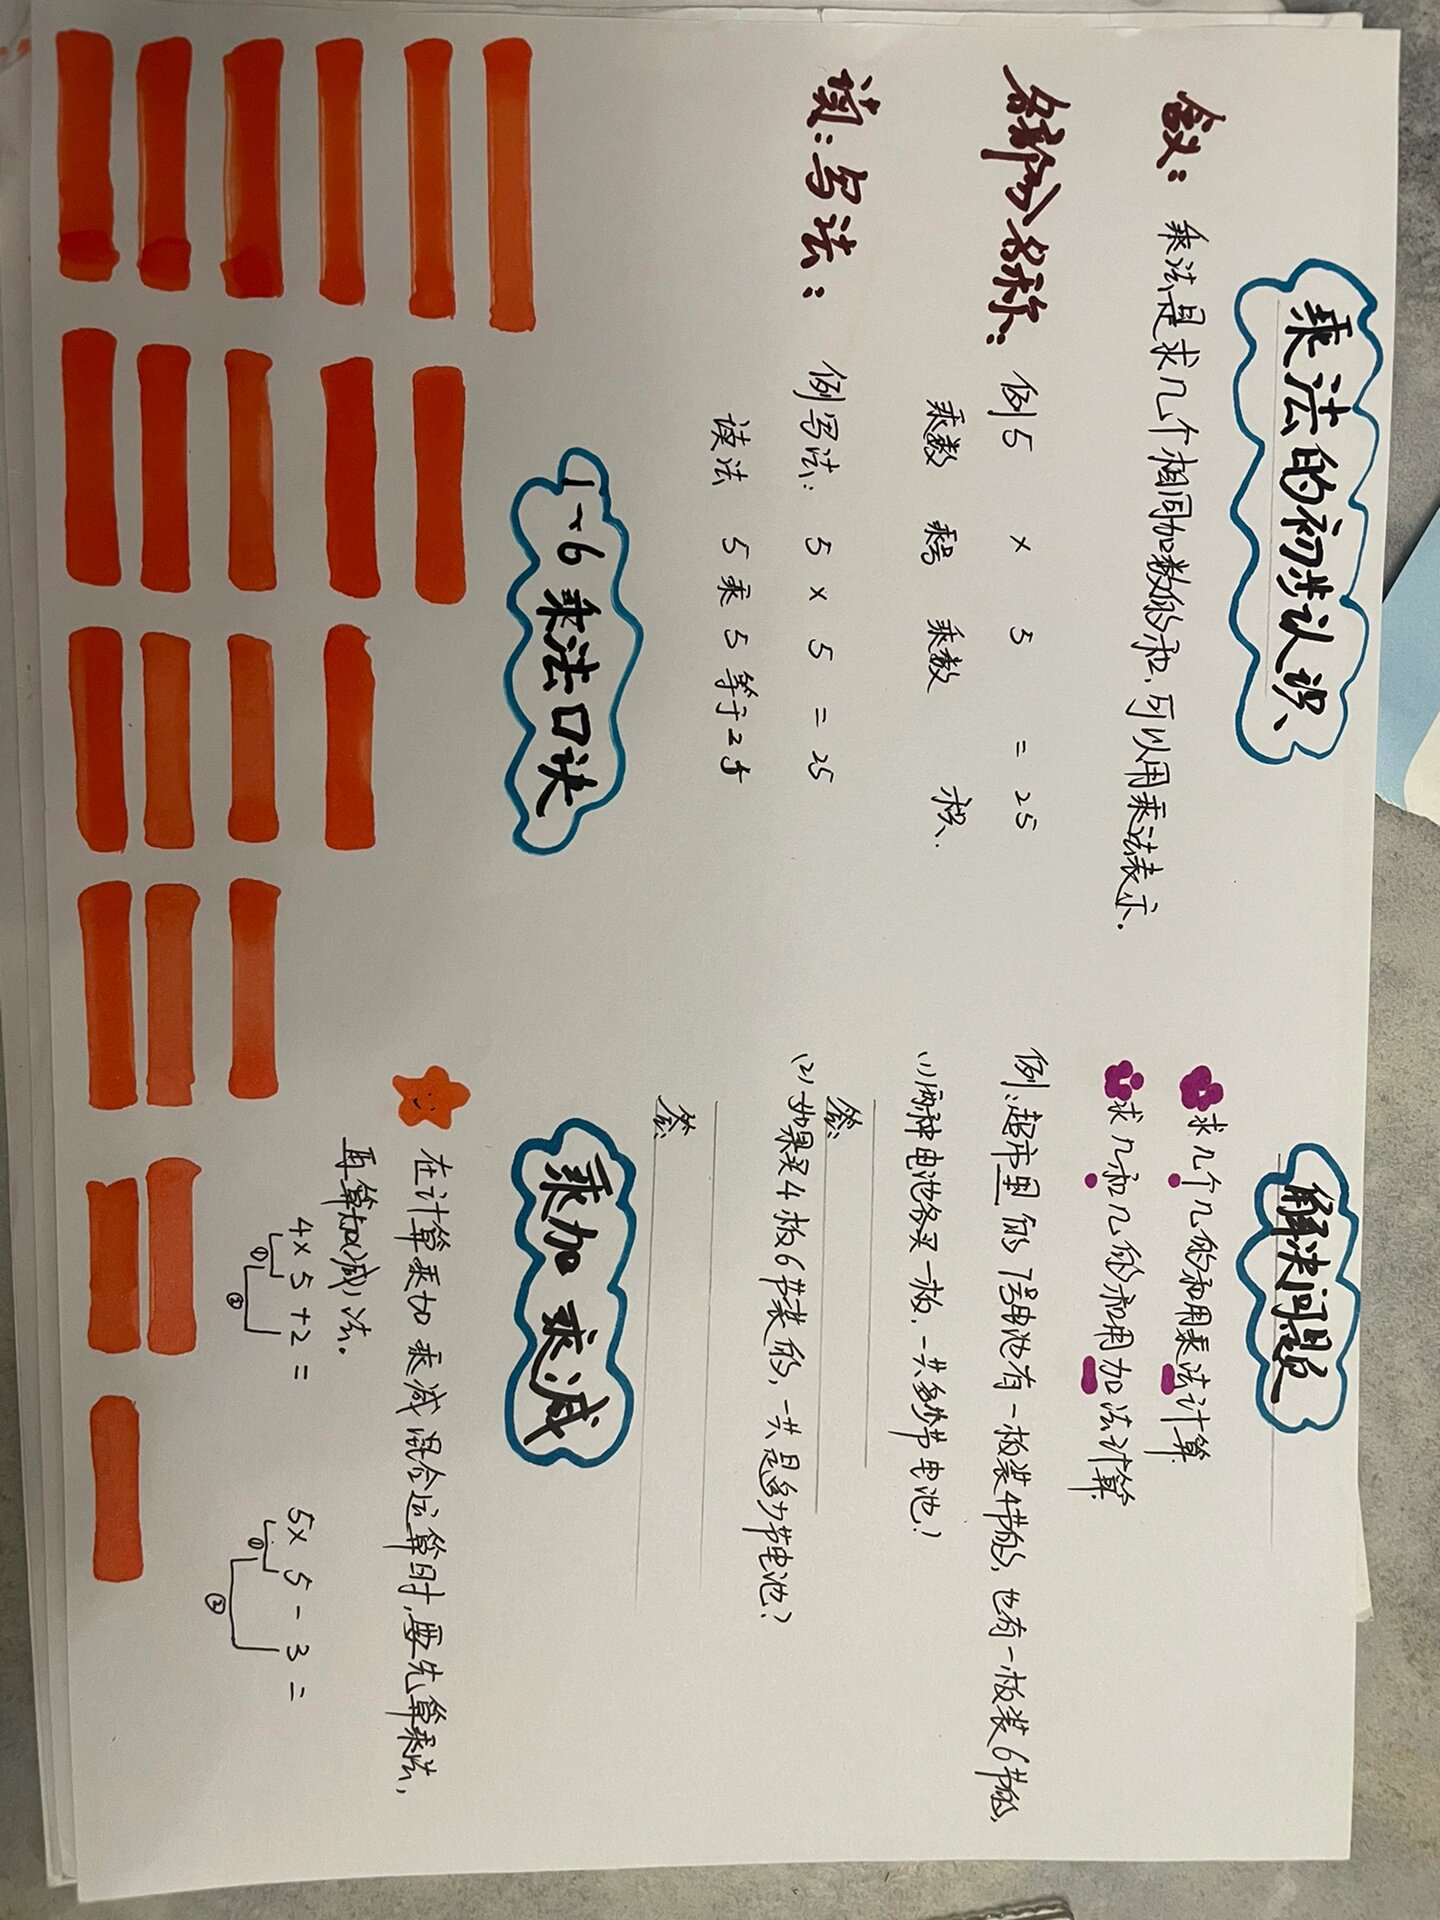 乘法的初步认识
含义：乘法是求几个相同加数的和，可以用乘法表示.
各部分名称：例 5 × 5 = 25
乘数 乘号 乘数 积
读：写法：例写法：5 × 5 = 25
读法 5 乘 5 等于 25
1~6乘法口诀
解决问题
求几个几的和用乘法计算.
求几和几的和用加法计算.
例：超市里的7号电池有一板装4节的，也有一板装6节的，
(1)两种电池各买一板，一共多少节电池？
答：
(2)如果买4板6节装的，一共是多少节电池？
答：
乘加 乘减
在计算乘加 乘减 混合运算时，要先算乘法，
再算加(减)法。
4 × 5 + 2 = 5 × 5 - 3 =
① ①
② ②